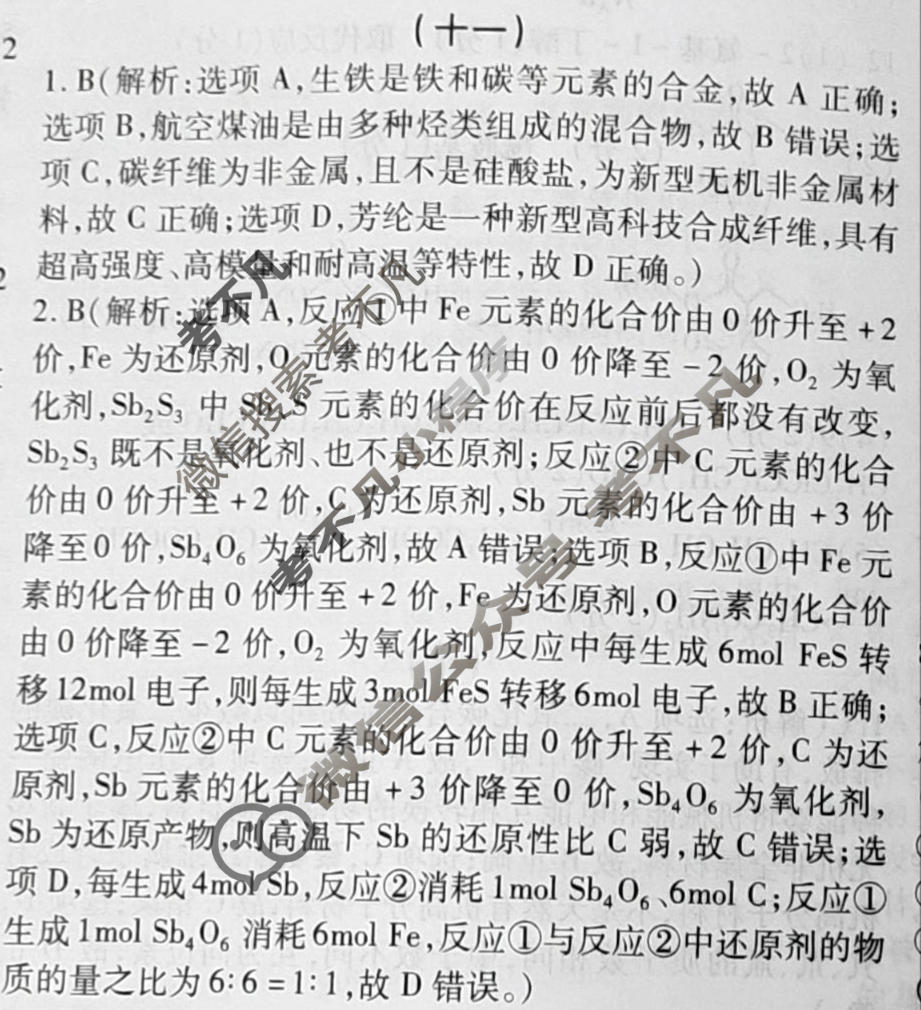 (十一)
2
1. B(解析:选项 A,生铁是铁和碳等元素的合金,故 A 正确;
选项 B,航空煤油是由多种烃类组成的混合物,故 B 错误;选
项 C,碳纤维为非金属,且不是硅酸盐,为新型无机非金属材
料,故 C 正确;选项 D,芳纶是一种新型高科技合成纤维,具有
超高强度、高模量和耐高温等特性,故 D 正确。)
2. B(解析:选项 A,反应①中 Fe 元素的化合价由 0 价升至 +2
价,Fe 为还原剂,O 元素的化合价由 0 价降至 -2 价,O₂ 为氧
化剂,Sb₂S₃ 中 Sb、S 元素的化合价在反应前后都没有改变,
Sb₂S₃ 既不是氧化剂、也不是还原剂;反应②中 C 元素的化合
价由 0 价升至 +2 价,C 为还原剂,Sb 元素的化合价由 +3 价
降至 0 价,Sb₄O₆ 为氧化剂,故 A 错误;选项 B,反应①中 Fe 元
素的化合价由 0 价升至 +2 价,Fe 为还原剂,O 元素的化合价
由 0 价降至 -2 价,O₂ 为氧化剂,反应中每生成 6mol FeS 转
移 12mol 电子,则每生成 3mol FeS 转移 6mol 电子,故 B 正确;
选项 C,反应②中 C 元素的化合价由 0 价升至 +2 价,C 为还
原剂,Sb 元素的化合价由 +3 价降至 0 价,Sb₄O₆ 为氧化剂,
Sb 为还原产物,则高温下 Sb 的还原性比 C 弱,故 C 错误;选
项 D,每生成 4mol Sb,反应②消耗 1mol Sb₄O₆、6mol C;反应①
生成 1mol Sb₄O₆ 消耗 6mol Fe,反应①与反应②中还原剂的物
质的量之比为 6∶6 = 1∶1,故 D 错误。)
考不凡
微信搜索 考不凡
考不凡小程序
微信公众号 考不凡